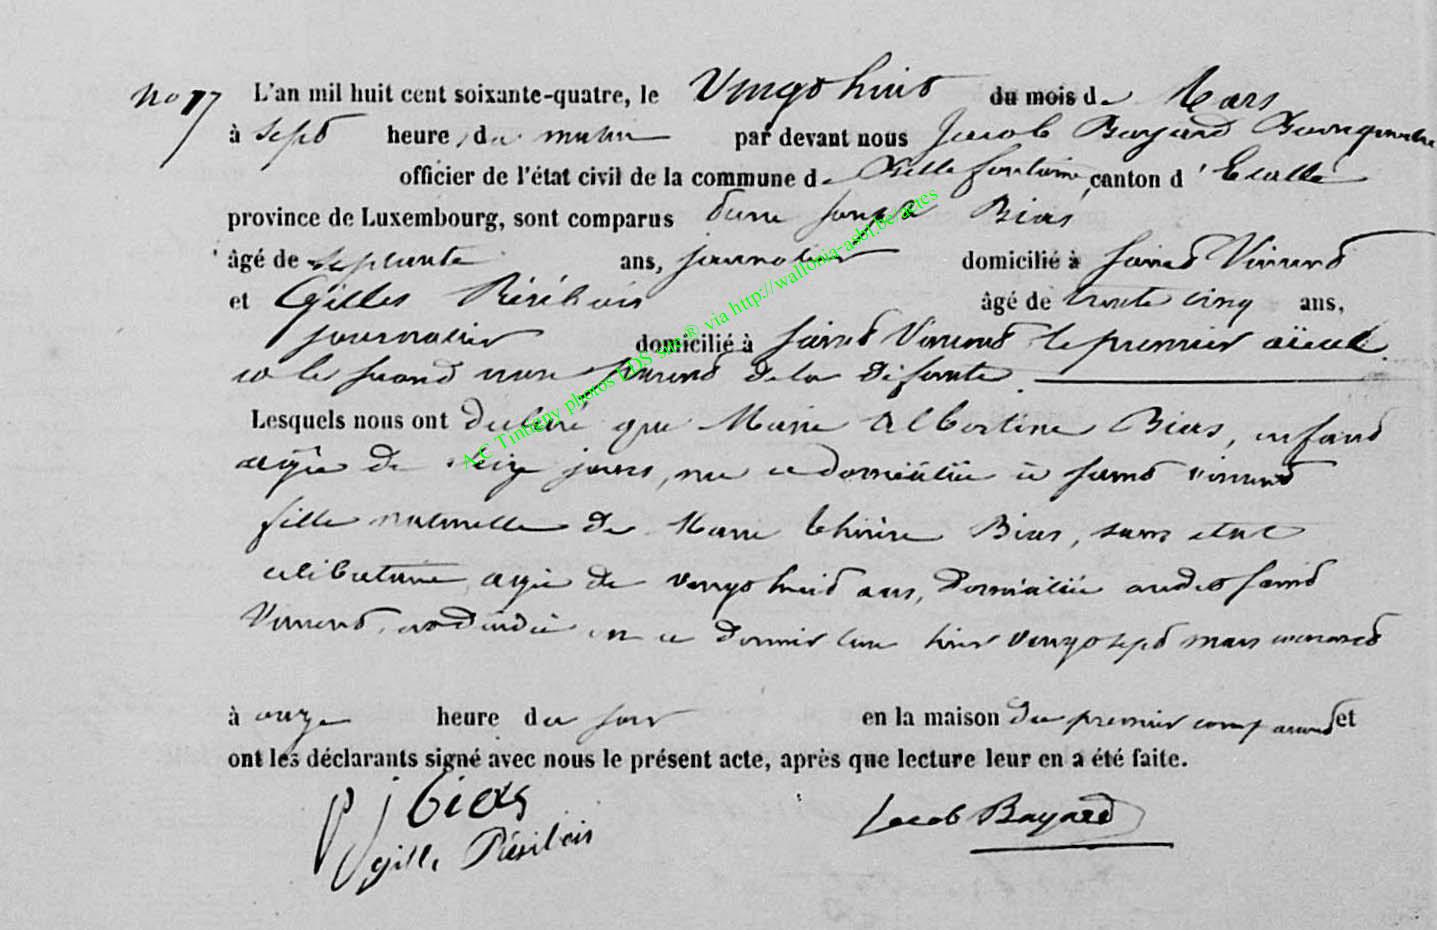 No 17 L'an mil huit cent soixante-quatre, le Vingt huit du mois de Mars
à sept heure du matin par devant nous Jacob Bayard Bourgmestre
officier de l'état civil de la commune de Bellefontaine, canton d'Etalle
province de Luxembourg, sont comparus Joseph Bias,
âgé de septante ans, journalier domicilié à Saint Vincent
et Gilles Résibois âgé de trente cinq ans,
journalier domicilié à Saint Vincent le premier aïeul
et le second non parent de la défunte.
Lesquels nous ont déclaré que Marie Albertine Bias, enfant
âgée de seize jours, née et domiciliée à Saint Vincent
fille naturelle de Marie Thérèse Bias, sans état
célibataire, âgée de vingt huit ans, domiciliée audit Saint
Vincent, est décédée en ce dernier lieu hier vingt sept mars courant
à onze heure du soir en la maison du premier comparant et
ont les déclarants signé avec nous le présent acte, après que lecture leur en a été faite.
j bias
gille Résibois
Jacob Bayard
A.C Tintigny photos EDS sa® via http://wallonia-asbl.be/actes